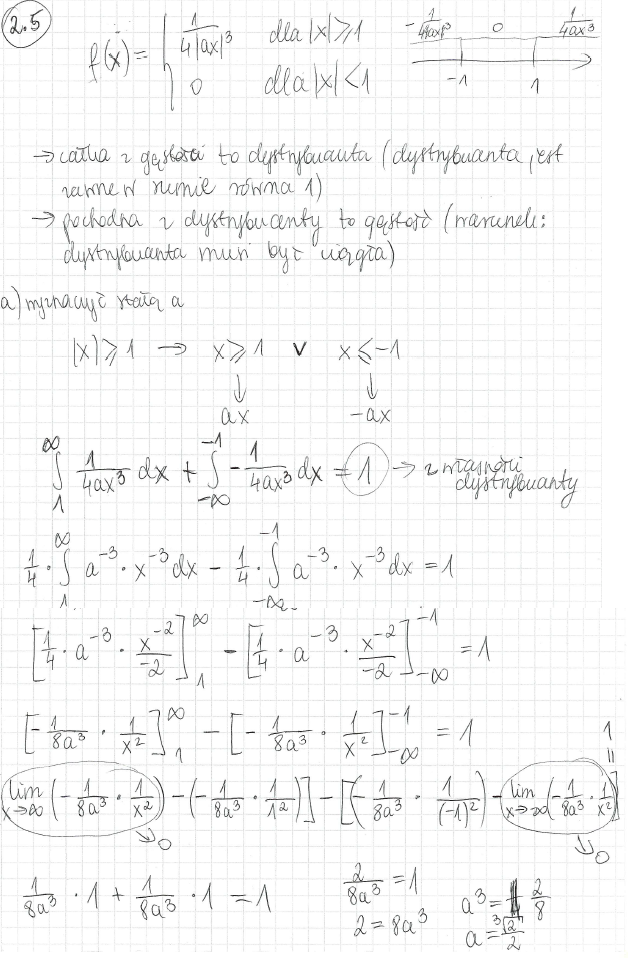 2.5
f(x) = { 1/(4|ax|³) dla |x| ≥ 1
0 dla |x| < 1
-1/(4|ax|³) 0 1/(4ax³)
-1 1
→ całka z gęstości to dystrybuanta (dystrybuanta jest
zawsze w sumie równa 1)
→ pochodna z dystrybuanty to gęstość (warunek:
dystrybuanta musi być ciągła)
a) wyznaczyć stałą a
|x| ≥ 1 → x ≥ 1 ∨ x ≤ -1
↓ ↓
ax -ax
∫₁^∞ 1/(4ax³) dx + ∫_{-∞}^{-1} -1/(4ax³) dx = 1 → z własności
dystrybuanty
1/4 · ∫₁^∞ a⁻³ · x⁻³ dx - 1/4 · ∫_{-∞}^{-1} a⁻³ · x⁻³ dx = 1
[1/4 · a⁻³ · x⁻²/-2]₁^∞ - [1/4 · a⁻³ · x⁻²/-2]_{-∞}^{-1} = 1
[-1/(8a³) · 1/x²]₁^∞ - [-1/(8a³) · 1/x²]_{-∞}^{-1} = 1
1
=
lim x→∞ (-1/(8a³) · 1/x²) - (-1/(8a³) · 1/1²)] - [(-1/(8a³) · 1/(-1)²) - lim x→-∞ (-1/(8a³) · 1/x²)]
→ 0 → 0
1/(8a³) · 1 + 1/(8a³) · 1 = 1
2/(8a³) = 1
2 = 8a³
a³ = 2/8
a = ³√2/2